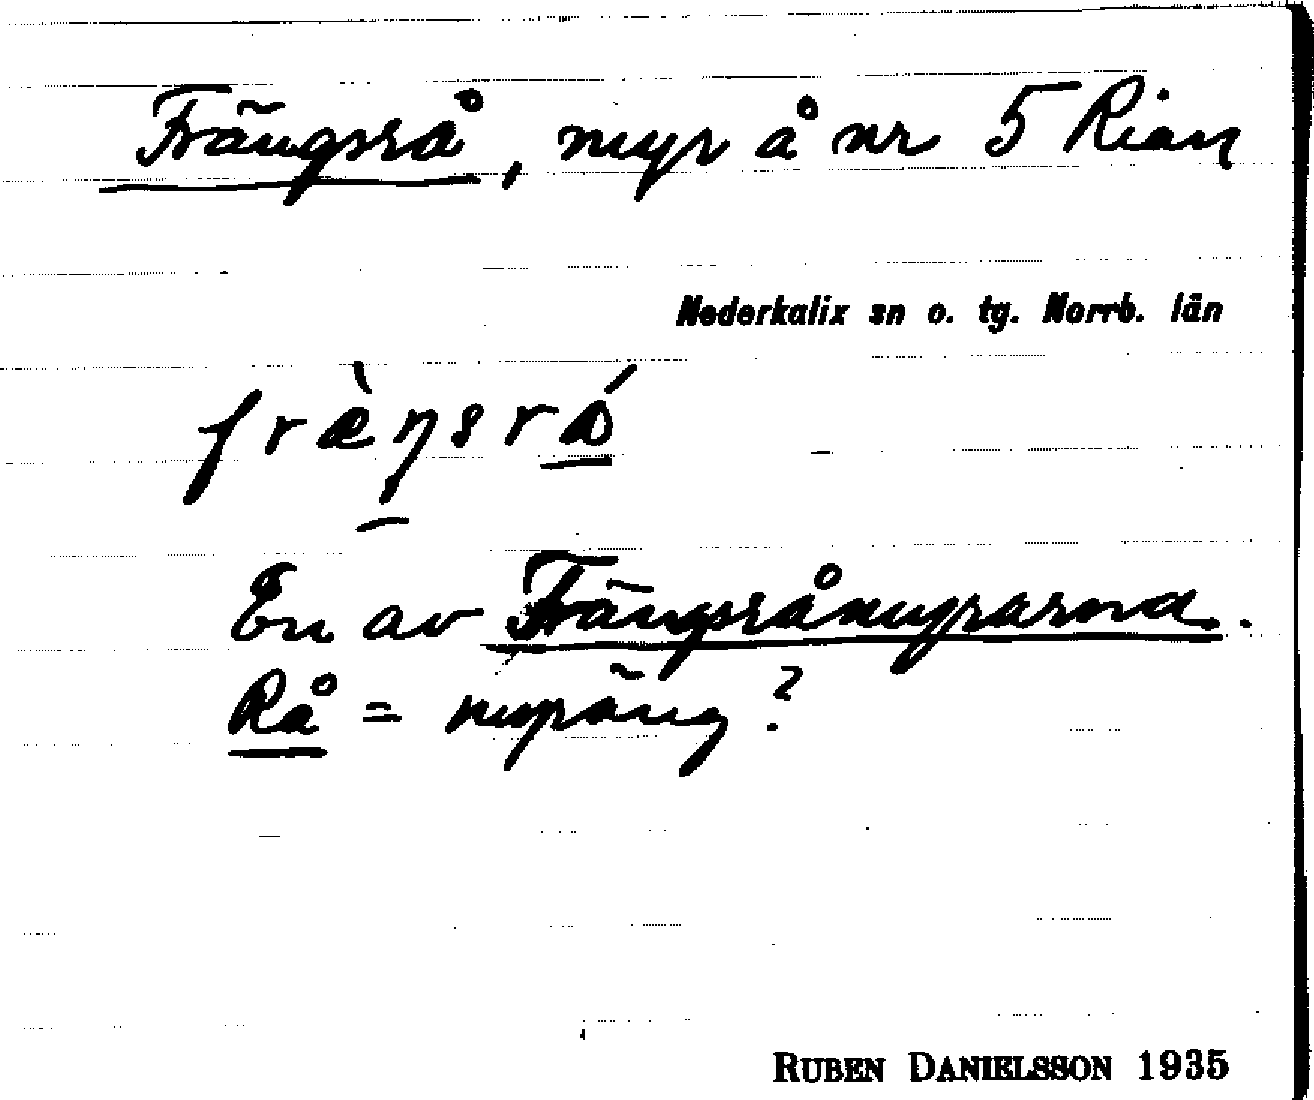 Frängsrå, myr å nr 5 Rian
Nederkalix sn o. tg. Norrb. län
fræ̀ŋsrá̊
En av Frängsråmyrarna.
Rå = myräng?
RUBEN DANIELSSON 1935